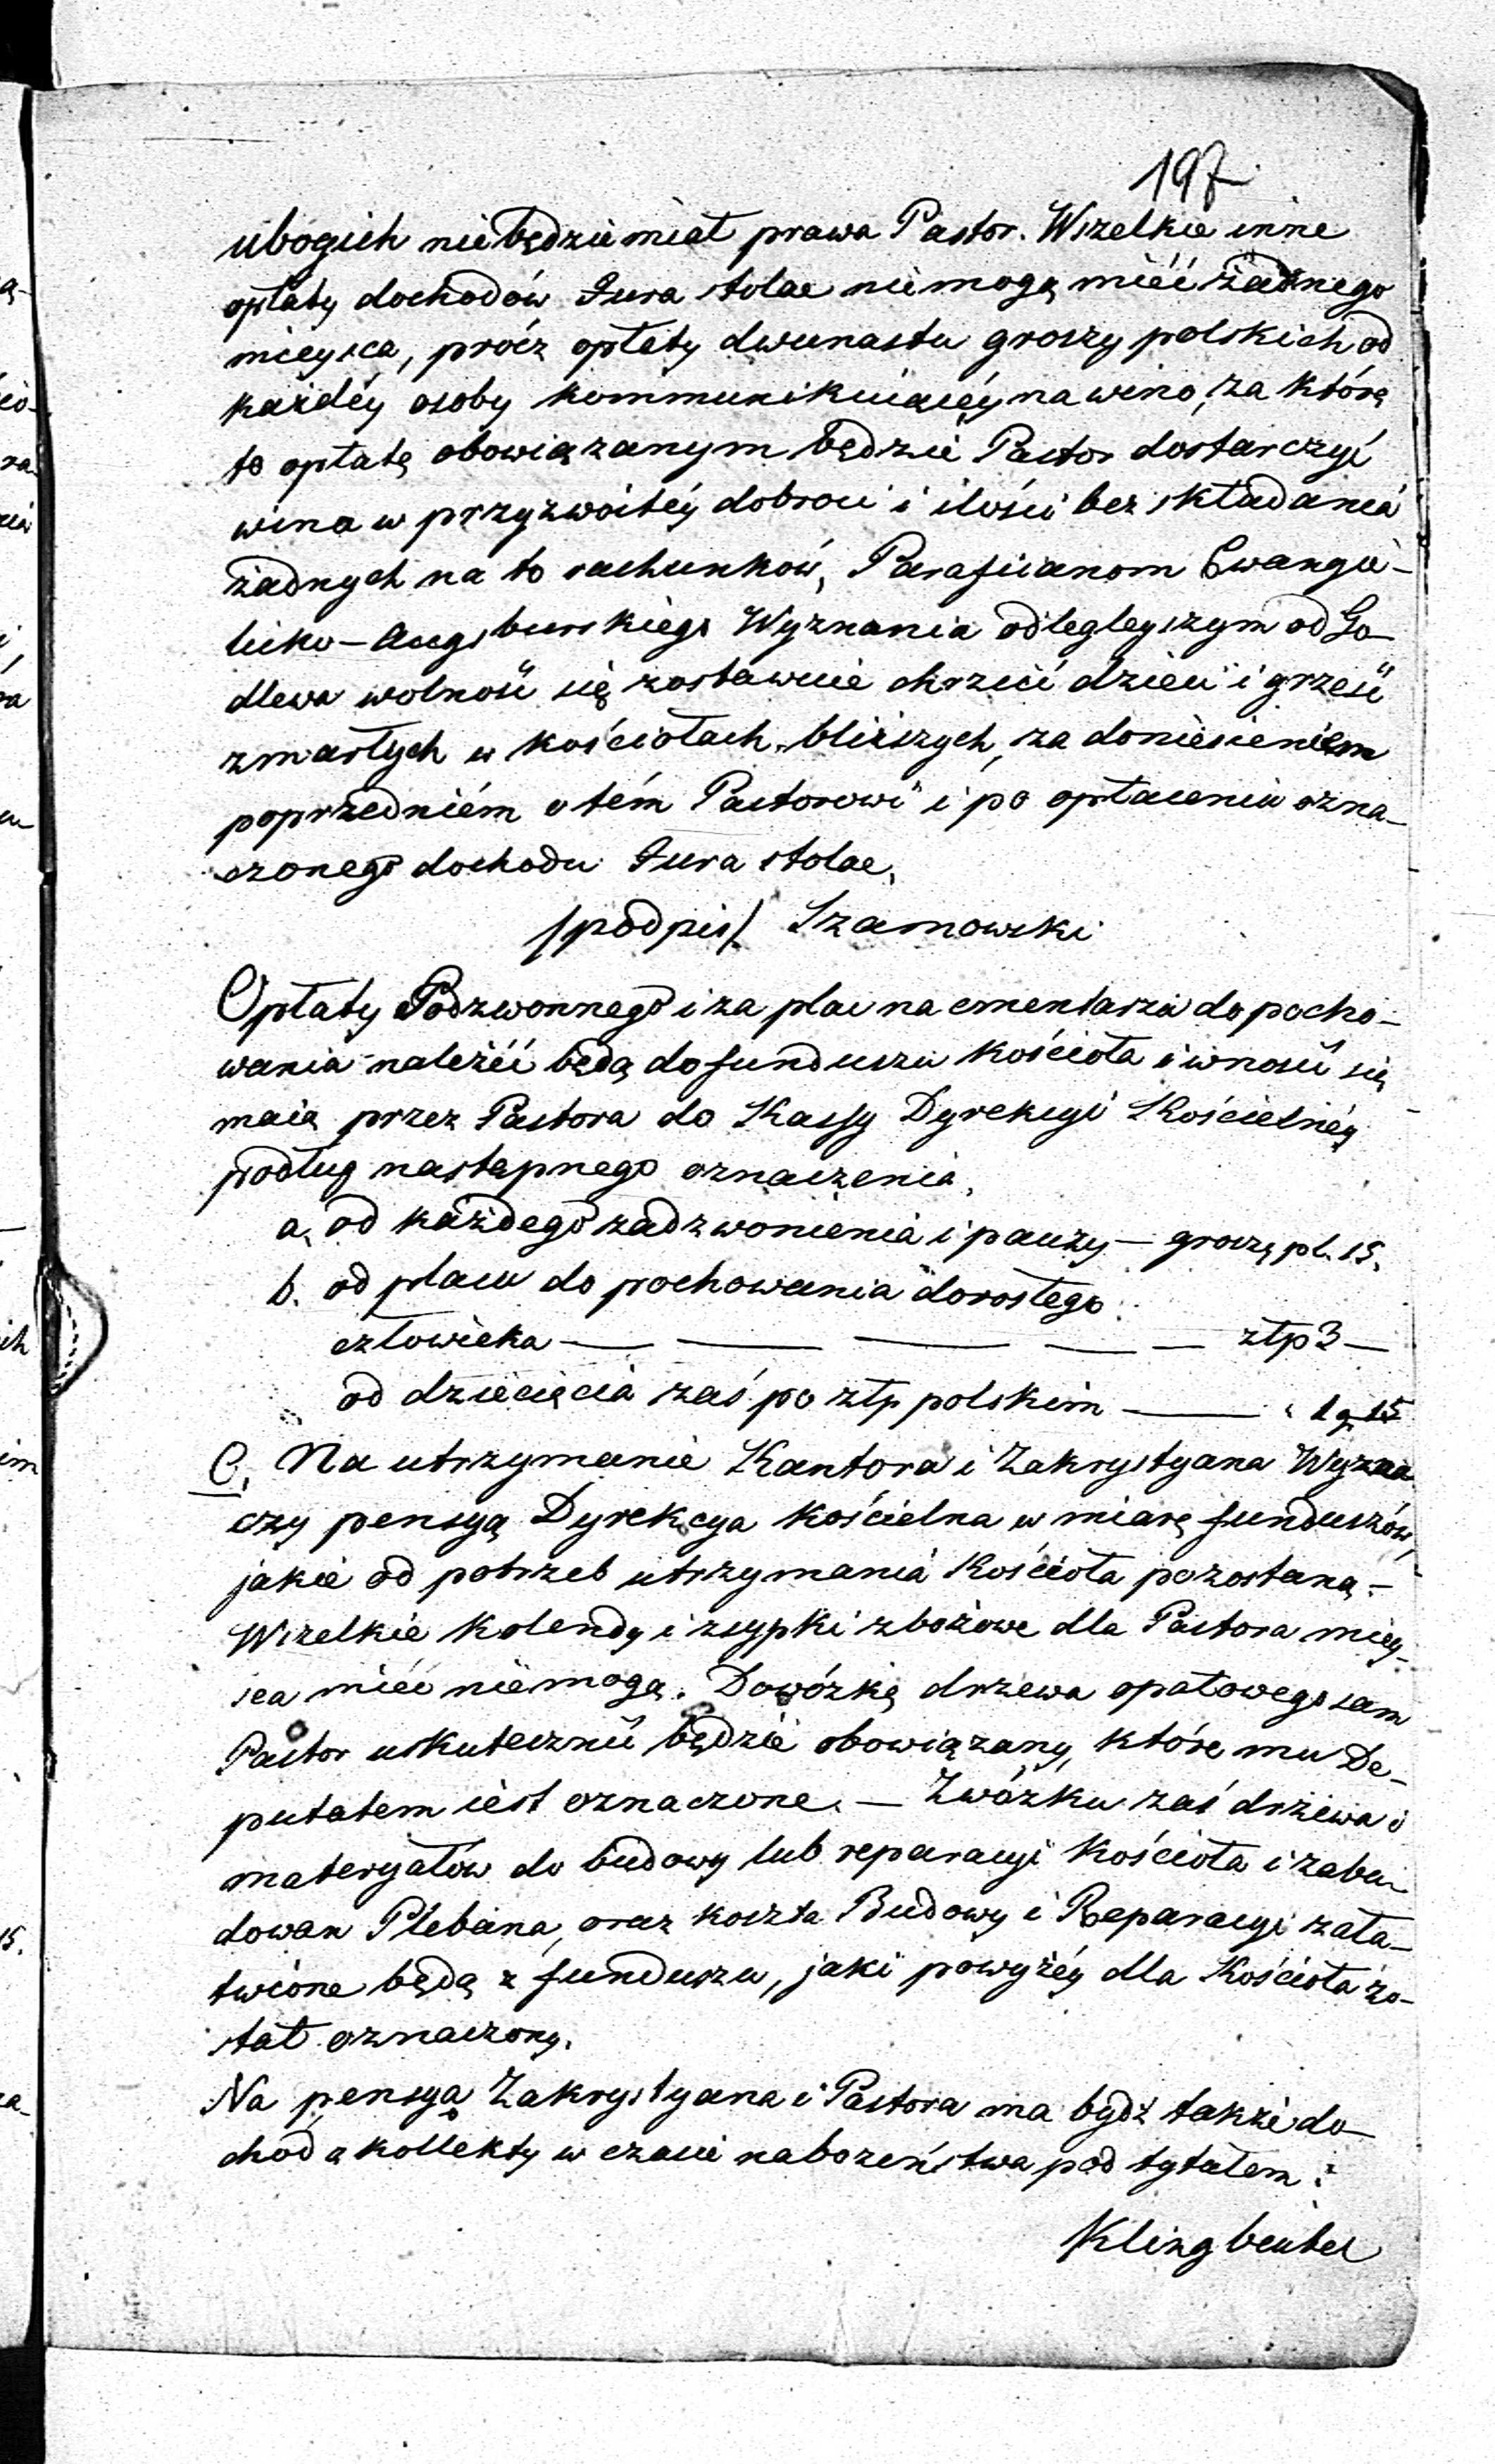 197
ubogich niebędzie miał prawa Pastor. Wszelkie inne
opłaty dochodów Jura stolae niemogą mieć żadnego
mieysca, prócz opłaty dwunastu groszy polskich od
każdéy osoby kommunikuiącéy na wino, za którą
to opłatę obowiązanym będzie Pastor dostarczyć
wina w przyzwoitéy dobroci i ilości bez składania
żadnych na to rachunków, Parafiianom Ewangie-
licko-Augsburskiego Wyznania odlegleyszym od Go-
dlewa wolność się zostawuie chrzcić dzieci i grześć
zmarłych w kościołach bliższych, za doniesieniem
poprzedniém o tém Pastorowi i po opłaceniu ozna-
czonego dochodu Jura stolae,
/podpis/ Szamowski
Opłaty Podzwonnego i za plac na cmentarzu do pocho-
wania należéć będą do funduszu Kościoła i wnosić się
maią przez Pastora do Kassy Dyrekcyi Kościelnéy
podług następnego oznaczenia,
a, od każdego zadzwonienia i pauzy — groszy pl. 15.
b. od placu do pochowania dorosłego
człowieka — — — — — złp 3 —
od dziecięcia zaś po złp polskim — " 1 g 15
C, Na utrzymanie Kantora i Zakrystyana Wyzna
czy pensyą Dyrekcya Kościelna w miarę funduszów,
jakie od potrzeb utrzymania Kościoła pozostaną. -
Wszelkie Kolendy i zsypki zbożowe dla Pastora miey-
sca mieć niemogą. Dowózkę drzewa opałowego sam
Pastor uskutecznić będzie obowiązany, które mu De-
putatem iest oznaczone. — Zwózku zaś drzewa i
materyałów do budowy lub reparacyi Kościoła i zabu-
dowan Plebana, oraz koszta Budowy i Reparacyi zała-
twione będą z funduszu, jaki powyżéy dla Kościoła zo-
stał oznaczony.
Na pensyą Zakrystyana i Pastora ma bydź także do-
chód z kollekty w czasie nabożeństwa pod tytułem:
Klingbeutel